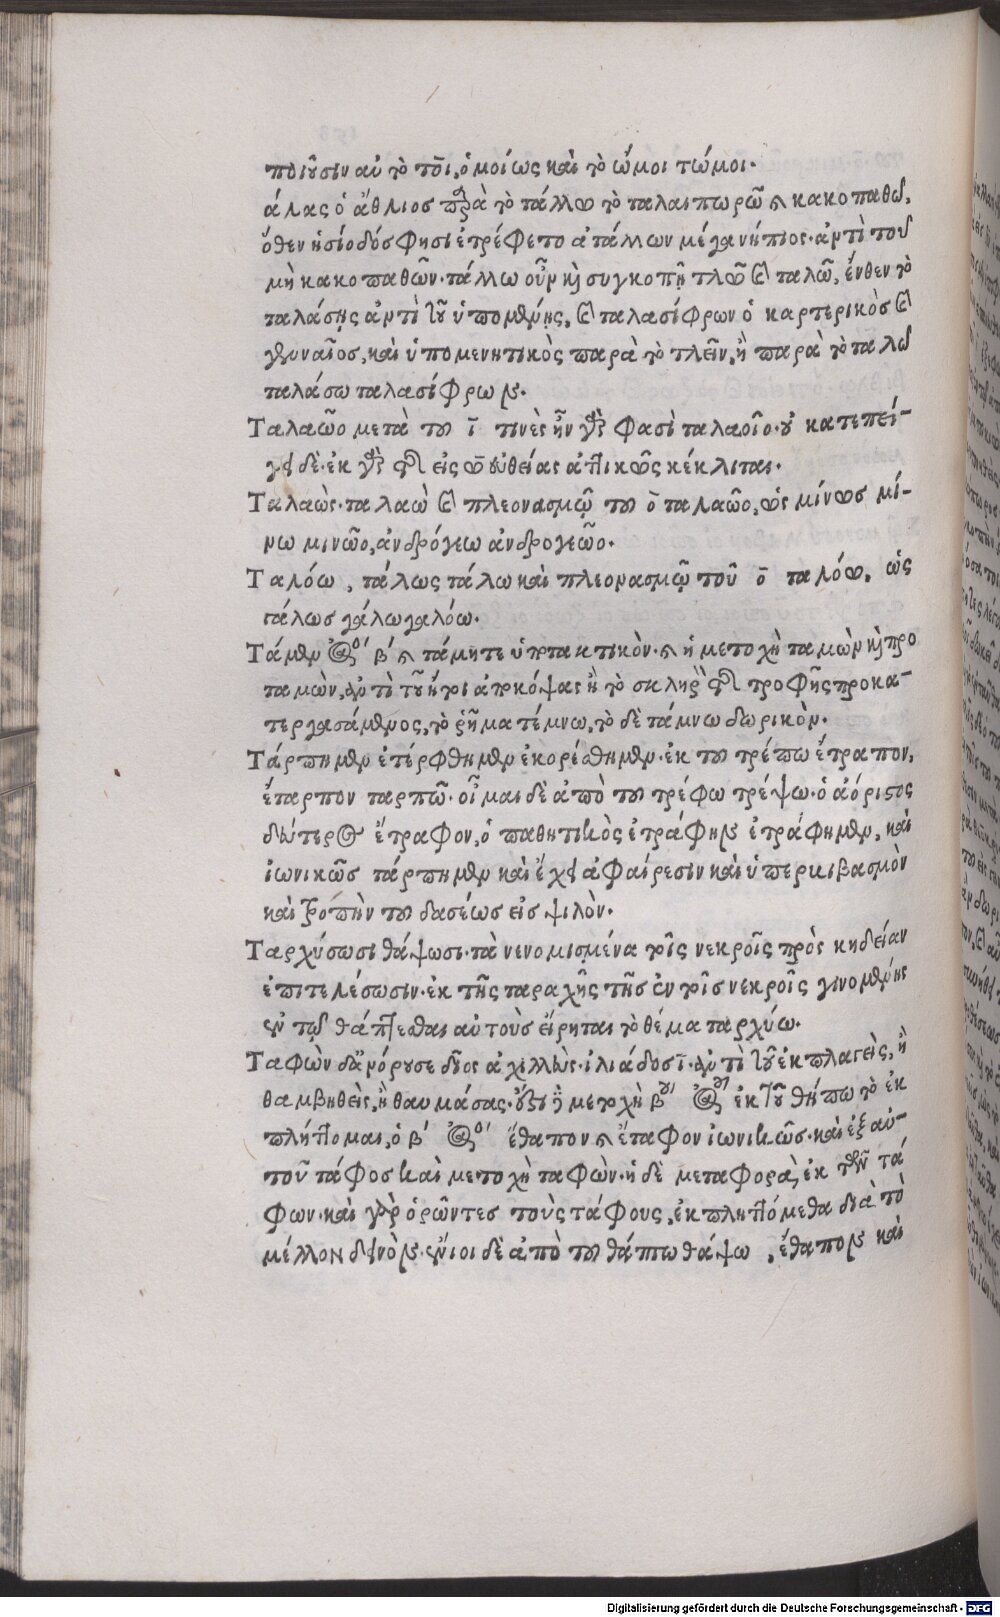 ποιοῦσιν αὐτὸ τῶι, ὁμοίως καὶ τὸ ὤμοι τώμοι.
άλας ὁ ἄθλιος παρὰ τὸ τάλλω τὸ ταλαιπωρῶ καὶ κακοπαθῶ,
ὅθεν ἡσίοδός φησι ἐτρέφετο ἀτάλλων μέγα νήπιος. ἀντὶ τοῦ
μὴ κακοπαθῶν. τάλλω οὖν κỳ συγκοπῇ τλῶ καὶ ταλῶ, ἔνθεν τὸ
ταλάσῃς ἀντὶ τοῦ ὑπομένῃς, καὶ ταλασίφρων ὁ καρτερικὸς καὶ
γενναῖος, καὶ ὑπομενητικὸς παρὰ τὸ τλεῖν, ἢ παρὰ τὸ ταλῶ
ταλάσω ταλασίφρων.
Ταλαῶο μετὰ τοῦ ῑ τινὲς φασὶ ταλαοῖο. οὐ κατεπεί-
γει δὲ. ἐκ γὰρ τῆς εἰς ως εὐθείας ἀττικῶς κέκλιται.
Ταλαὼς. ταλαὼ καὶ πλεονασμῷ τοῦ ο̄ ταλαῶο, ὡς μίνως μί-
νω μινῶο, ἀνδρόγεω ἀνδρογεῶο.
Ταλόω, τάλως τάλω καὶ πλεονασμῷ τοῦ ο̄ ταλόω, ὡς
γάλως γάλω γαλόω.
Τάμεν ἀόρ β΄ καὶ τάμητε ὑποτακτικὸν. καὶ ἡ μετοχὴ ταμὼν κỳ προ
ταμὼν, ἀντὶ τοῦ ἀποκόψας ἢ τὸ σκληρὸν τῆς τροφῆς προκα-
τεργασάμενος, τὸ ῥῆμα τέμνω, τὸ δὲ τάμνω δωρικὸν.
Τάρπημεν ἐτέρφθημεν ἐκορέσθημεν. ἐκ τοῦ τρέπω ἔτραπον,
ἔταρπον ταρπῶ. οἶμαι δὲ ἀπὸ τοῦ τρέφω τρέψω. ὁ ἀόριστος
δεύτερος ἔτραφον, ὁ παθητικὸς ἐτράφην ἐτράφημεν, καὶ
ἰωνικῶς τάρπημεν καὶ ἔχει ἀφαίρεσιν καὶ ὑπερβιβασμὸν
καὶ τροπὴν τοῦ δασέως εἰς ψιλὸν.
Ταρχύσωσι θάψωσι. τὰ νενομισμένα τοῖς νεκροῖς πρὸς κηδείαν
ἐπιτελέσωσιν. ἐκ τῆς ταραχῆς τῆς ἐν τοῖς νεκροῖς γινομένης
ἐν τῷ θάπτεσθαι αὐτοὺς εἴρηται τὸ θέμα ταρχύω.
Ταφὼν δ' ἀνόρουσε δῖος ἀχιλλεὺς. ἰλιάδος ῑ. ἀντὶ τοῦ ἐκπλαγεὶς, ἢ
θαμβηθεὶς, ἢ θαυμάσας. μετοχὴ β΄ ἀόρ ἐκ τοῦ θήπω τὸ ἐκ
πλήττομαι, ὁ β΄ ἀόρ ἔθαπον καὶ ἔταφον ἰωνικῶς. καὶ ἐξ αὐ-
τοῦ τάφος καὶ μετοχὴ ταφὼν. ἡ δὲ μεταφορὰ, ἐκ τῶν τά
φων. καὶ γὰρ ὁρῶντες τοὺς τάφους, ἐκπληττόμεθα διὰ τὸ
μέλλον δεινὸν. ἔνιοι δὲ ἀπὸ τοῦ θάπτω θάψω, ἔθαπον καὶ
Digitalisierung gefördert durch die Deutsche Forschungsgemeinschaft - DFG